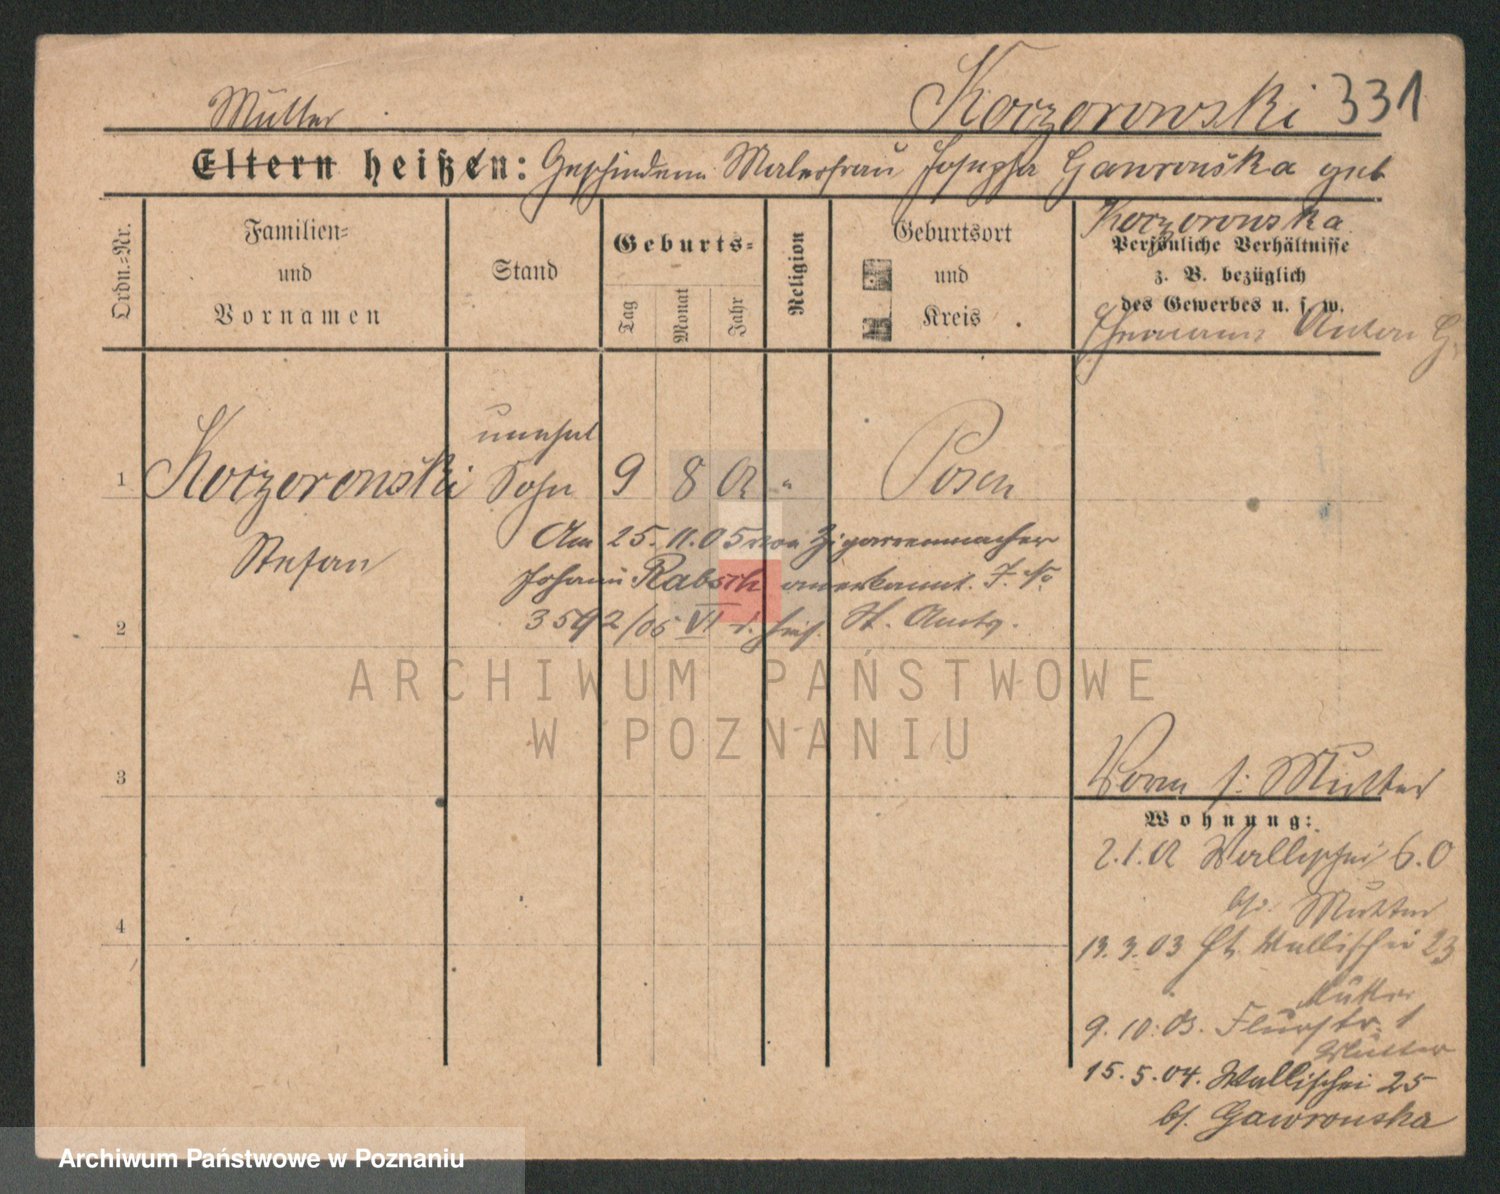 Koczorowski 331
Mutter
Eltern heißen: Geschiedene Malerfrau Josepha Gawronska geb
Koczorowska
Ordn.-Nr.
Familien-
und
Vornamen
Stand
Geburts-
Tag
Monat
Jahr
Religion
Geburtsort
und
Kreis
Persönliche Verhältnisse
z. B. bezüglich
des Gewerbes u. s. w.
Ehemann Anton G.
unehel
1 Koczorowski Sohn 9 8 01 " Posen
Stefan
Am 25.11.05 von Zigarrenmacher
Johann Rabsch anerkannt. J. No
3592/05 VI d. St. Amts.
2
3
4
Vorm s: Mutter
Wohnung:
2.1.02 Wallischei 6.0
bei Mutter
13.3.03 Wallischei 23
Mutter
9.10.03. Flurstr. 1
Mutter
15.5.04. Wallischei 25
b/ Gawronska
ARCHIWUM PAŃSTWOWE
W POZNANIU
Archiwum Państwowe w Poznaniu